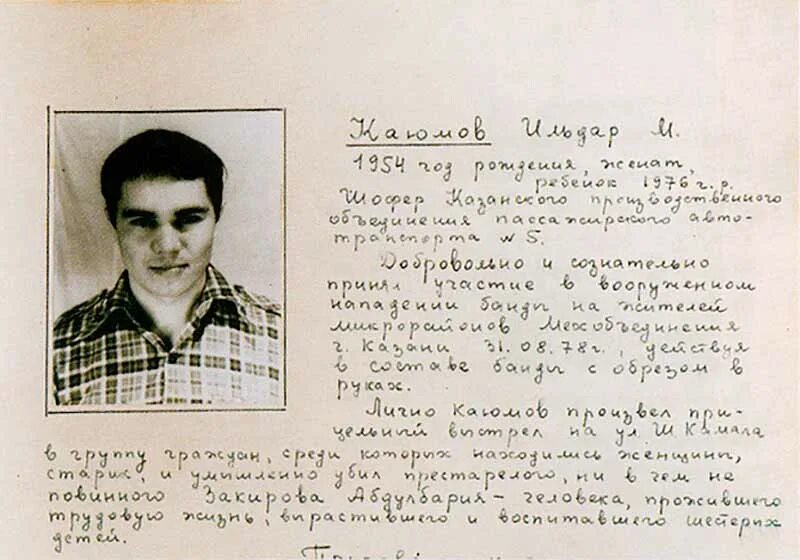 Каюмов Ильдар М.
1954 год рождения, женат,
ребёнок 1976 г. р.
Шофер Казанского производственного
объединения пассажирского авто-
транспорта № 5.
Добровольно и сознательно
принял участие в вооруженном
нападении банды на жителей
микрорайонов Мехобъединения
г. Казани 31.08.78г., действуя
в составе банды с обрезом в
руках.
Лично Каюмов произвел при-
цельный выстрел на ул. Ш. Камала
в группу граждан, среди которых находились женщины,
старик, и умышленно убил престарелого, ни в чем не
повинного Закирова Абдулбария - человека, прожившего
трудовую жизнь, вырастившего и воспитавшего шестерых
детей.